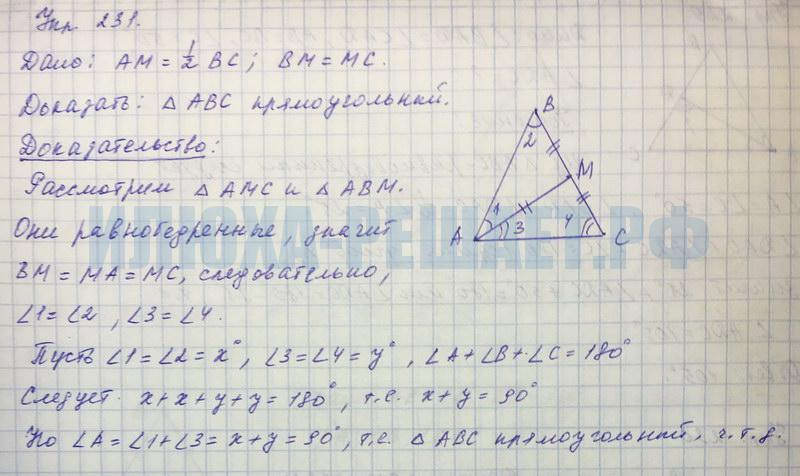 Упр. 231.
Дано: AM = 1/2 BC; BM = MC.
Доказать: △ ABC прямоугольный.
Доказательство:
Рассмотрим △ AMC и △ ABM.
Они равнобедренные, значит
BM = MA = MC, следовательно,
∠1=∠2, ∠3=∠4.
Пусть ∠1=∠2=x°, ∠3=∠4=y°, ∠A+∠B+∠C=180°
Следует x+x+y+y=180°, т.е. x+y=90°
Но ∠A=∠1+∠3=x+y=90°, т.е. △ ABC прямоугольный, ч.т.д.
B
2
M
1
3
4
A
C
ИЛЮХА-РЕШАЕТ.РФ